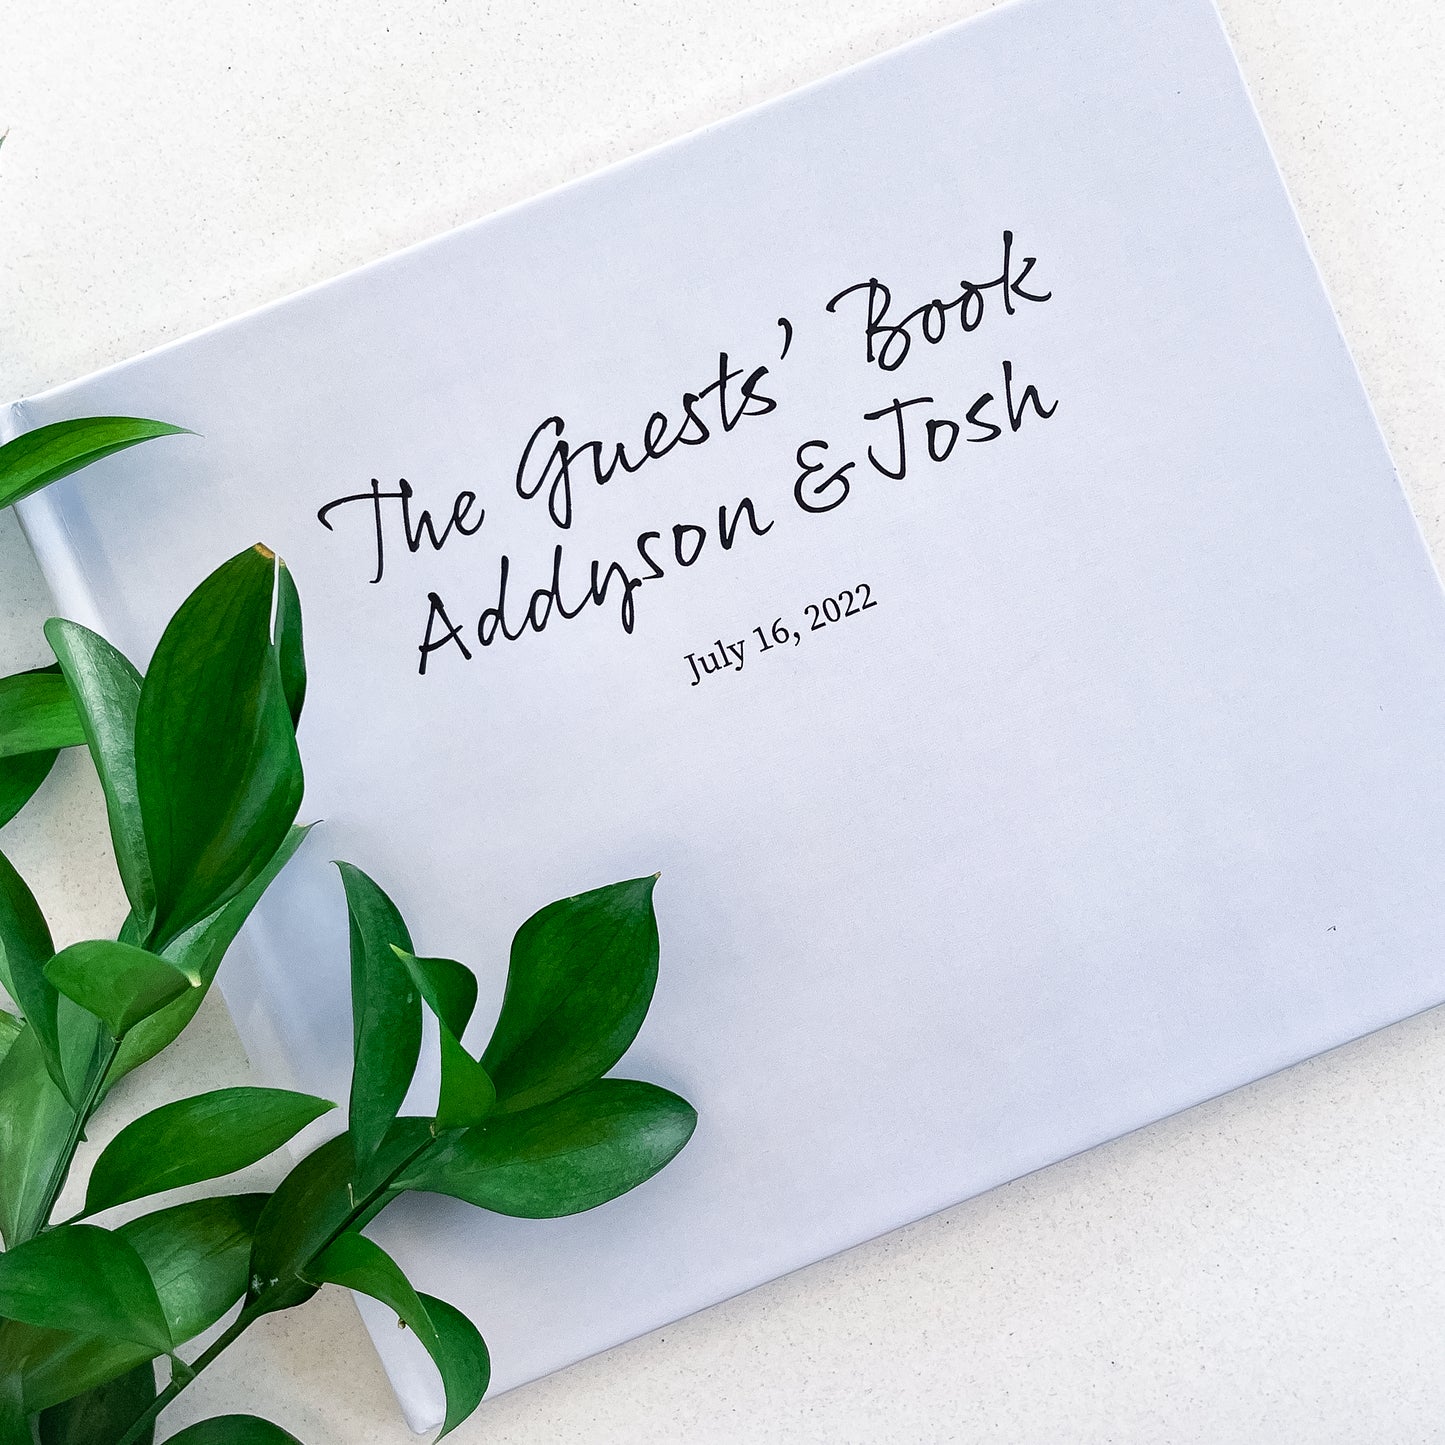 The Guests’ Book
Addyson & Josh
July 16, 2022